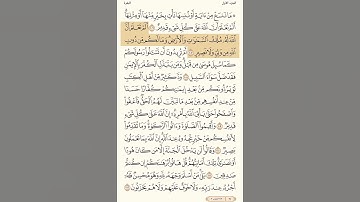 الجزء الأول
البقرة
۞ مَا نَنسَخْ مِنْ ءَايَةٍ أَوْ نُنسِهَا نَأْتِ بِخَيْرٍ مِّنْهَآ أَوْ مِثْلِهَآ
أَلَمْ تَعْلَمْ أَنَّ ٱللَّهَ عَلَىٰ كُلِّ شَىْءٍ قَدِيرٌ ١٠٦ أَلَمْ تَعْلَمْ أَنَّ
ٱللَّهَ لَهُۥ مُلْكُ ٱلسَّمَـٰوَٰتِ وَٱلْأَرْضِ وَمَا لَكُم مِّن دُونِ
ٱللَّهِ مِن وَلِىٍّ وَلَا نَصِيرٍ ١٠٧ أَمْ تُرِيدُونَ أَن تَسْـَٔلُوا۟ رَسُولَكُمْ
كَمَا سُئِلَ مُوسَىٰ مِن قَبْلُ وَمَن يَتَبَدَّلِ ٱلْكُفْرَ بِٱلْإِيمَـٰنِ
فَقَدْ ضَلَّ سَوَآءَ ٱلسَّبِيلِ ١٠٨ وَدَّ كَثِيرٌ مِّنْ أَهْلِ ٱلْكِتَـٰبِ
لَوْ يَرُدُّونَكُم مِّنۢ بَعْدِ إِيمَـٰنِكُمْ كُفَّارًا حَسَدًا
مِّنْ عِندِ أَنفُسِهِم مِّنۢ بَعْدِ مَا تَبَيَّنَ لَهُمُ ٱلْحَقُّ فَٱعْفُوا۟
وَٱصْفَحُوا۟ حَتَّىٰ يَأْتِىَ ٱللَّهُ بِأَمْرِهِۦٓ إِنَّ ٱللَّهَ عَلَىٰ كُلِّ شَىْءٍ
قَدِيرٌ ١٠٩ وَأَقِيمُوا۟ ٱلصَّلَوٰةَ وَءَاتُوا۟ ٱلزَّكَوٰةَ وَمَا تُقَدِّمُوا۟
لِأَنفُسِكُم مِّنْ خَيْرٍ تَجِدُوهُ عِندَ ٱللَّهِ إِنَّ ٱللَّهَ بِمَا تَعْمَلُونَ
بَصِيرٌ ١١٠ وَقَالُوا۟ لَن يَدْخُلَ ٱلْجَنَّةَ إِلَّا مَن كَانَ هُودًا
أَوْ نَصَـٰرَىٰ تِلْكَ أَمَانِيُّهُمْ قُلْ هَاتُوا۟ بُرْهَـٰنَكُمْ إِن كُنتُمْ
صَـٰدِقِينَ ١١١ بَلَىٰ مَنْ أَسْلَمَ وَجْهَهُۥ لِلَّهِ وَهُوَ مُحْسِنٌ فَلَهُۥٓ
أَجْرُهُۥ عِندَ رَبِّهِۦ وَلَا خَوْفٌ عَلَيْهِمْ وَلَا هُمْ يَحْزَنُونَ ١١٢